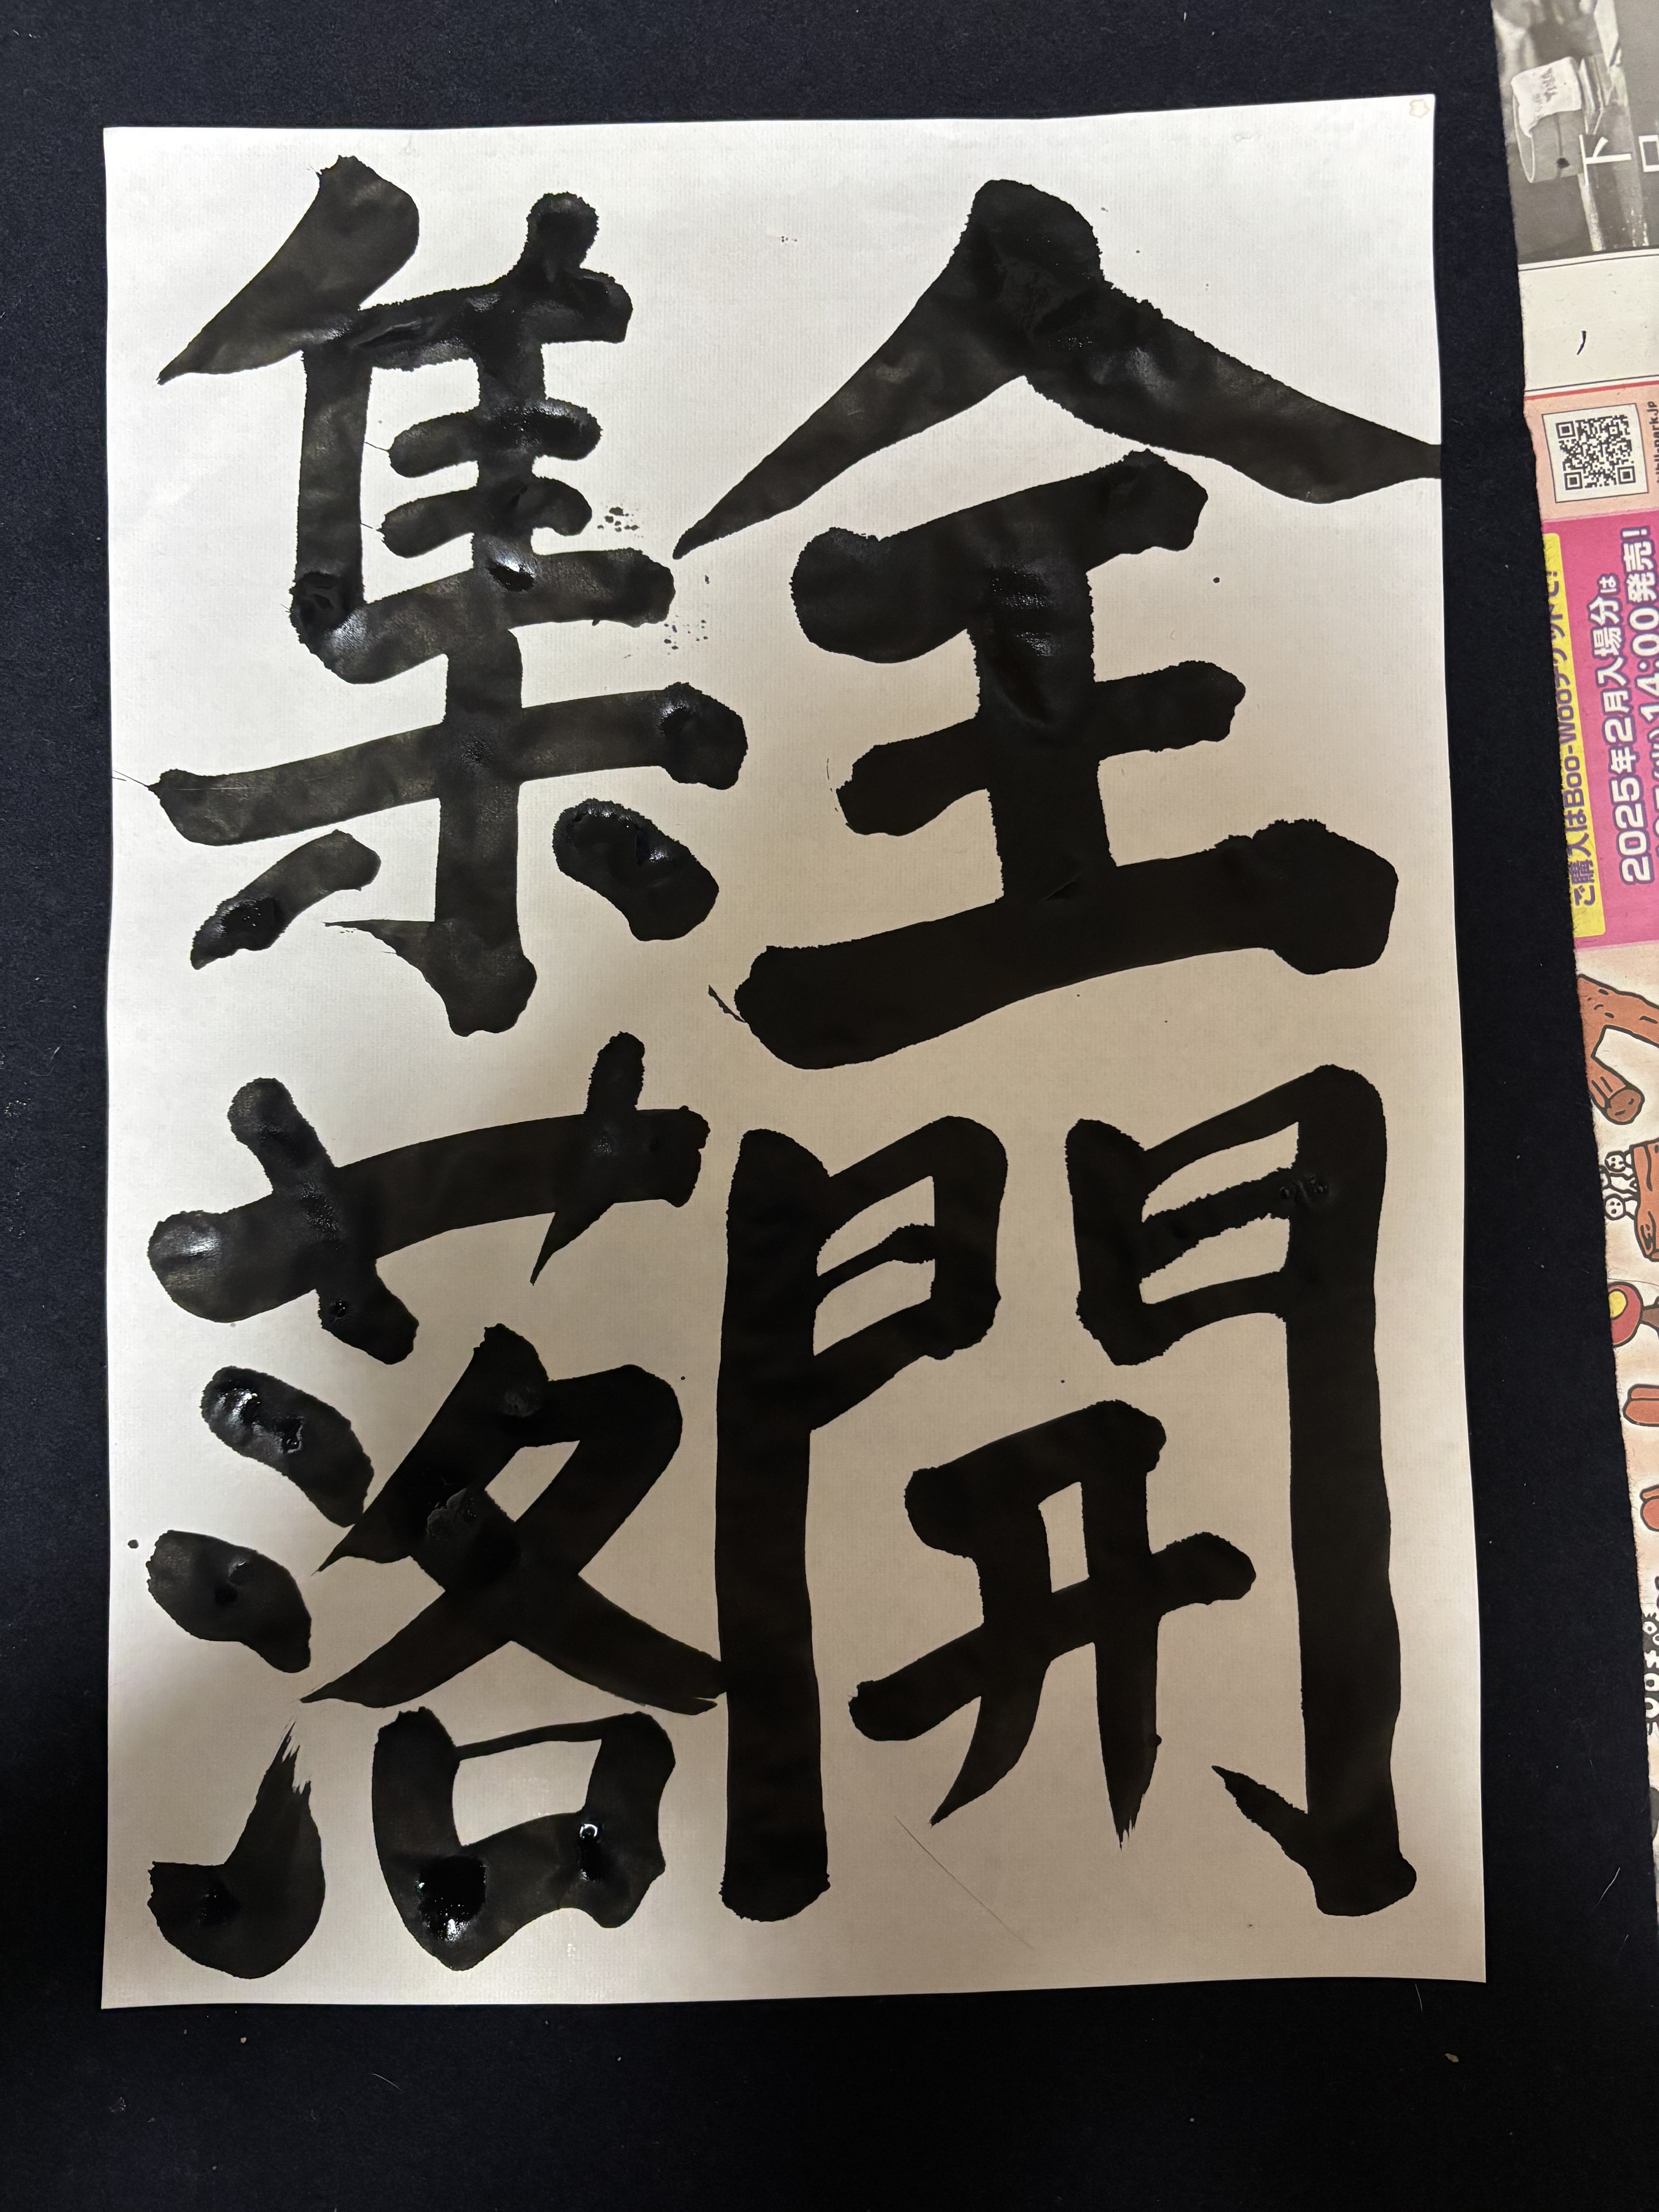 全開
集落
ご購入はBoo-Wooチケットで!
2025年2月入場分は
14:00発売!